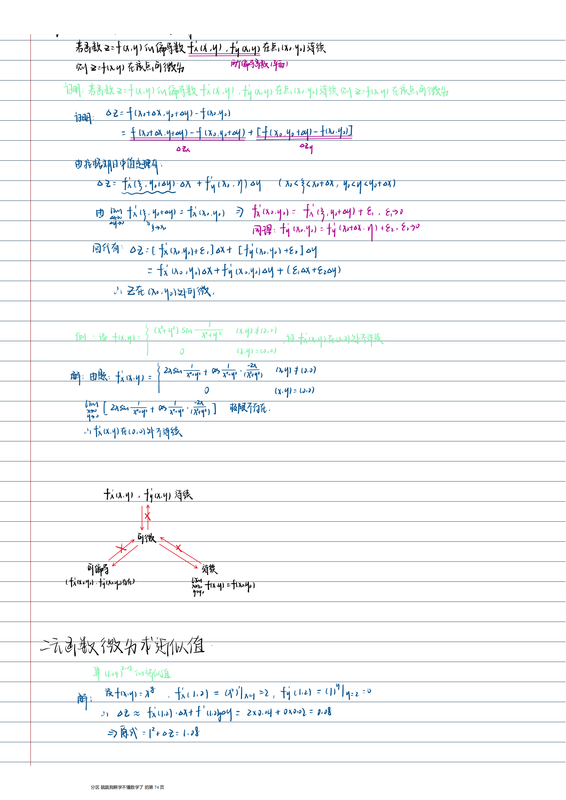 若函数 z=f(x,y) 的偏导数 f'x(x,y), f'y(x,y) 在点(x₀,y₀)连续
则 z=f(x,y) 在该点可微
证明: 若函数 z=f(x,y) 的偏导数 f'x(x,y), f'y(x,y) 在点(x₀,y₀)连续 则 z=f(x,y) 在该点可微
证明: Δz = f(x₀+Δx, y₀+Δy) - f(x₀,y₀)
= f(x₀+Δx, y₀+Δy) - f(x₀, y₀+Δy) + [f(x₀, y₀+Δy) - f(x₀,y₀)]
Δzx Δzy
由拉格朗日中值定理得:
Δz = f'x(ξ, y₀+Δy)Δx + f'y(x₀, η)Δy (x₀<ξ<x₀+Δx, y₀<η<y₀+Δy)
由 lim f'x(ξ, y₀+Δy) = f'x(x₀,y₀) ⇒ f'x(x₀,y₀) = f'x(ξ, y₀+Δy) + ε₁, ε₁→0
ξ→x₀
同理: f'y(x₀,y₀) = f'y(x₀+Δx, η) + ε₂, ε₂→0
Δz = [f'x(x₀,y₀)+ε₁]Δx + [f'y(x₀,y₀)+ε₂]Δy
= f'x(x₀,y₀)Δx + f'y(x₀,y₀)Δy + (ε₁Δx+ε₂Δy)
∴ z在(x₀,y₀)处可微.
例: 设 f(x,y) = { (x²+y²) sin 1/(x²+y²) (x,y)≠(0,0)
0 (x,y)=(0,0)
, 证 f'x(x,y)在(0,0)处不连续
解: 由题: f'x(x,y) = { 2x sin 1/(x²+y²) + cos 1/(x²+y²) · -2x/(x²+y²)² (x,y)≠(0,0)
0 (x,y)=(0,0)
lim [2x sin 1/(x²+y²) + cos 1/(x²+y²) · -2x/(x²+y²)²] 极限不存在.
x→0
y→0
∴ f'x(x,y)在(0,0)处不连续
f'x(x,y), f'y(x,y) 连续
可微
可偏导 连续
(f'x(x₀,y₀), f'y(x₀,y₀)存在) lim f(x,y) = f(x₀,y₀)
x→x₀
y→y₀
二元函数微分求近似值
解: 设 f(x,y) = x^y, f'x(1,2) = (x²)'|x=1 = 2, f'y(1,2) = (1^y)'|y=2 = 0
∴ Δz ≈ f'x(1,2)·Δx + f'(1,2)Δy = 2×0.04 + 0×0.02 = 0.08
⇒ 原式 = 1² + Δz = 1.08